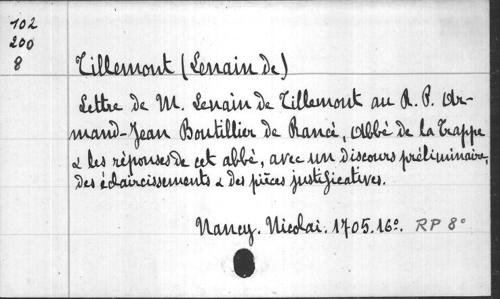 102
200
8
Tillemont (Lenain de)
Lettre de M. Lenain de Tillemont au R. P. Ar-
mand-Jean Boutillier de Rancé, Abbé de la Trappe
& les réponses de cet abbé, avec un discours préliminaire,
des éclaircissements & des pièces justificatives.
Nancy. Nicolai. 1705. 16º. RP 8º